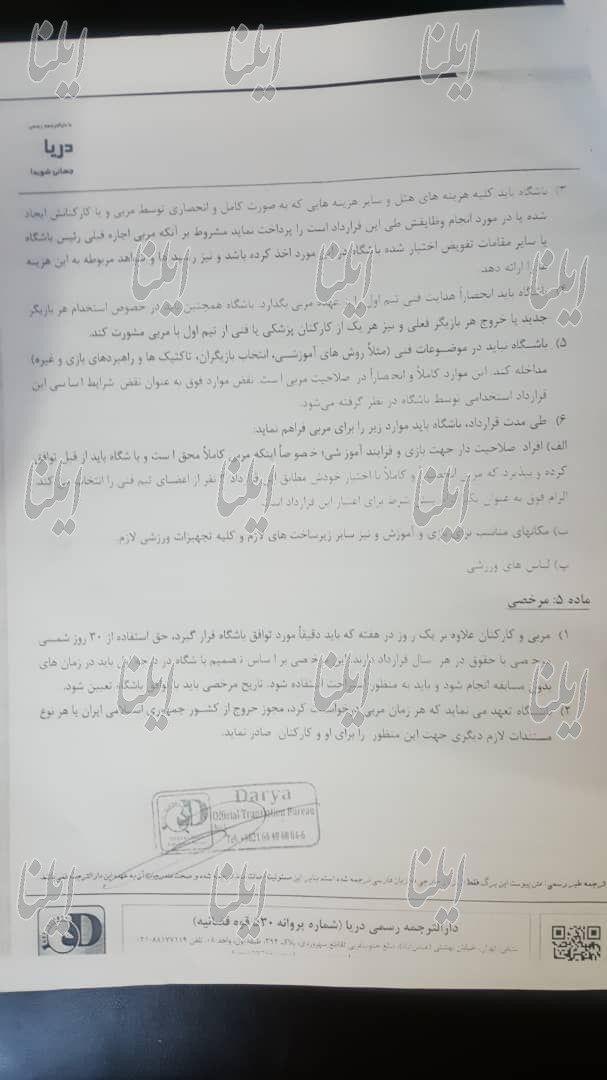 ایلنا ایلنا ایلنا
با دارالترجمه رسمی
دریا
جهانی شوید!
۳) باشگاه باید کلیه هزینه های هتل و سایر هزینه هایی که به صورت کامل و انحصاری توسط مربی و یا کارکنانش ایجاد
شده یا در مورد انجام وظایفش طی این قرارداد است را پرداخت نماید مشروط بر آنکه مربی اجازه قبلی رئیس باشگاه
یا سایر مقامات تفویض اختیار شده باشگاه در این مورد اخذ کرده باشد و نیز رسیدها و شواهد مربوطه به این هزینه
ها را ارائه دهد.
باشگاه باید انحصاراً هدایت فنی تیم اول را بر عهده مربی بگذارد. باشگاه همچنین باید در خصوص استخدام هر بازیگر
جدید یا خروج هر بازیگر فعلی و نیز هر یک از کارکنان پزشکی یا فنی از تیم اول با مربی مشورت کند.
۵) باشگاه نباید در موضوعات فنی (مثلاً روش های آموزشی، انتخاب بازیگران، تاکتیک ها و راهبردهای بازی و غیره)
مداخله کند. این موارد کاملاً و انحصاراً در صلاحیت مربی است. نقض موارد فوق به عنوان نقض شرایط اساسی این
قرارداد استخدامی توسط باشگاه در نظر گرفته می‌شود.
۶) طی مدت قرارداد، باشگاه باید موارد زیر را برای مربی فراهم نماید:
الف) افراد صلاحیت دار جهت بازی و فرایند آموزشی؛ خصوصاً اینکه مربی کاملاً محق است و باشگاه باید از قبل توافق
کرده و بپذیرد که مربی انحصاراً و کاملاً با اختیار خودش مطابق این قرارداد نفر از اعضای تیم فنی را انتخاب کند.
الزام فوق به عنوان یک شرط برای اعتبار این قرارداد است.
ب) مکانهای مناسب برای بازی و آموزش و نیز سایر زیرساخت های لازم و کلیه تجهیزات ورزشی لازم.
پ) لباس های ورزشی
ماده ۵: مرخصی
۱) مربی و کارکنان علاوه بر یک روز در هفته که باید دقیقاً مورد توافق باشگاه قرار گیرد، حق استفاده از ۳۰ روز شمسی
مرخصی با حقوق در هر سال قرارداد دارند. این مرخصی بر اساس تصمیم باشگاه در باید در زمان های
بدون مسابقه انجام شود و باید به منظور استراحت استفاده شود. تاریخ مرخصی باید با توافق باشگاه تعیین شود.
۲) باشگاه تعهد می نماید که هر زمان مربی درخواست کرد، مجوز خروج از کشور جمهوری اسلامی ایران یا هر نوع
مستندات لازم دیگری جهت این منظور را برای او و کارکنان صادر نماید.
Darya
Official Translation Bureau
Tel: +9821 66 49 68 04-6
ترجمه غیر رسمی: متن پیوست این برگ فقط
دارالترجمه رسمی دریا (شماره پروانه ۵۳۰ قوه قضائیه)